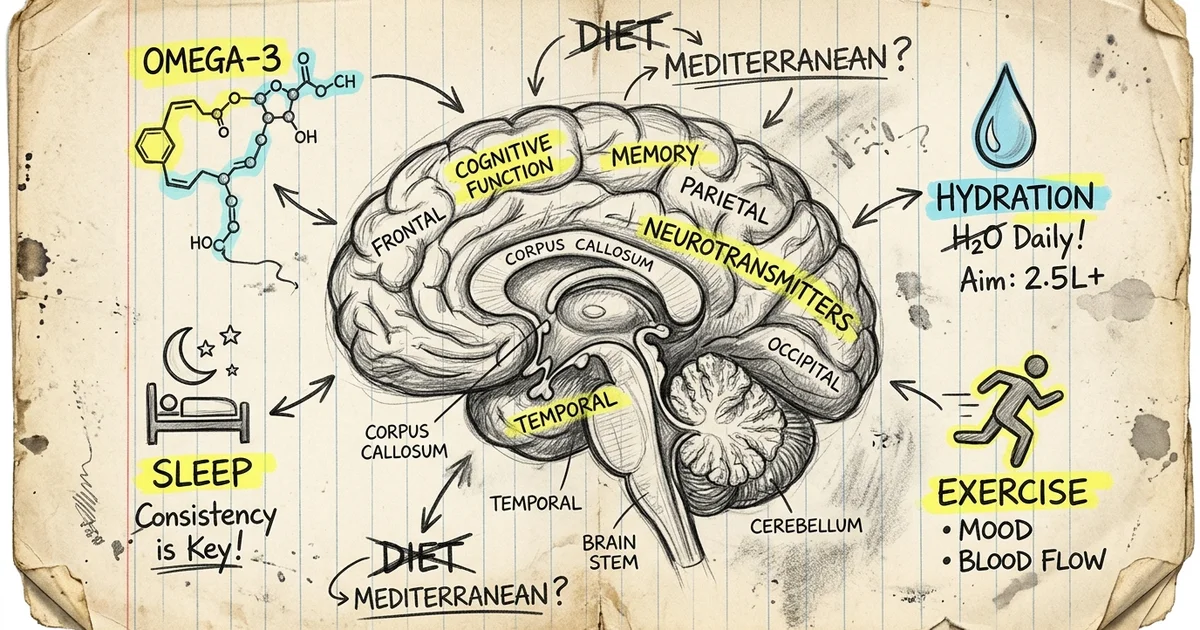 DIET
MEDITERRANEAN?
OMEGA-3
O
O
CH
O
O
O
OH
HO
COGNITIVE
FUNCTION
MEMORY
PARIETAL
FRONTAL
CORPUS CALLOSUM
NEUROTRANSMITTERS
OCCIPITAL
TEMPORAL
HYDRATION
H₂O Daily!
Aim: 2.5L+
SLEEP
Consistency
is Key!
CORPUS
CALLOSUM
TEMPORAL
BRAIN
STEM
CEREBELLUM
EXERCISE
• MOOD
• BLOOD FLOW
DIET
MEDITERRANEAN?